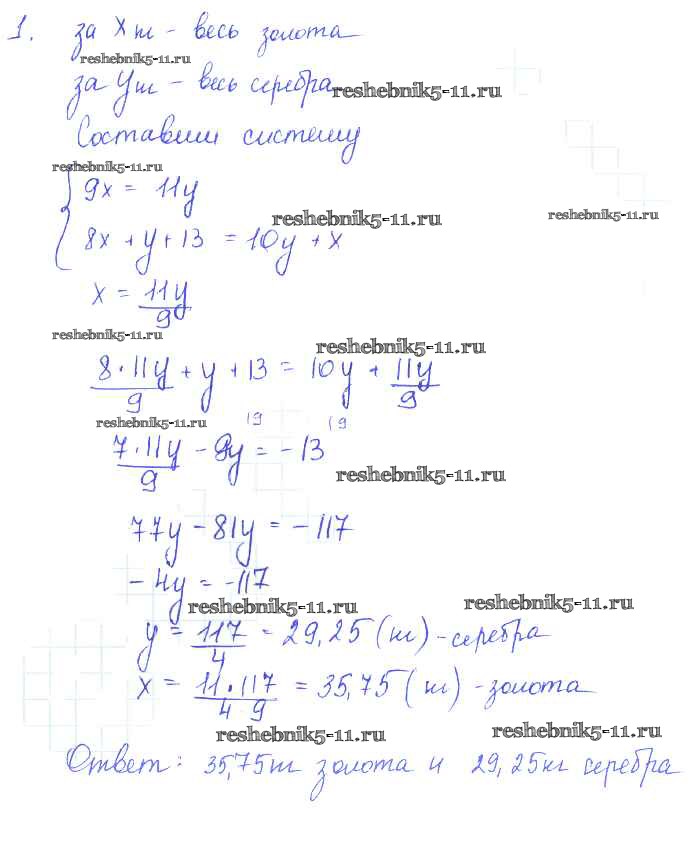 1. за x кг - весь золота
reshebnik5-11.ru
за y кг - весь серебра reshebnik5-11.ru
Составим систему
reshebnik5-11.ru
9x = 11y
reshebnik5-11.ru reshebnik5-11.ru
8x + y + 13 = 10y + x
x = 11y/9
reshebnik5-11.ru reshebnik5-11.ru
8·11y/9 + y + 13 = 10y + 11y/9
reshebnik5-11.ru |9 (9
7·11y/9 - 9y = -13
reshebnik5-11.ru
77y - 81y = -117
-4y = -117
reshebnik5-11.ru reshebnik5-11.ru
y = 117/4 = 29,25 (кг) - серебра
x = 11·117/4·9 = 35,75 (кг) - золота
reshebnik5-11.ru reshebnik5-11.ru
Ответ: 35,75кг золота и 29,25кг серебра